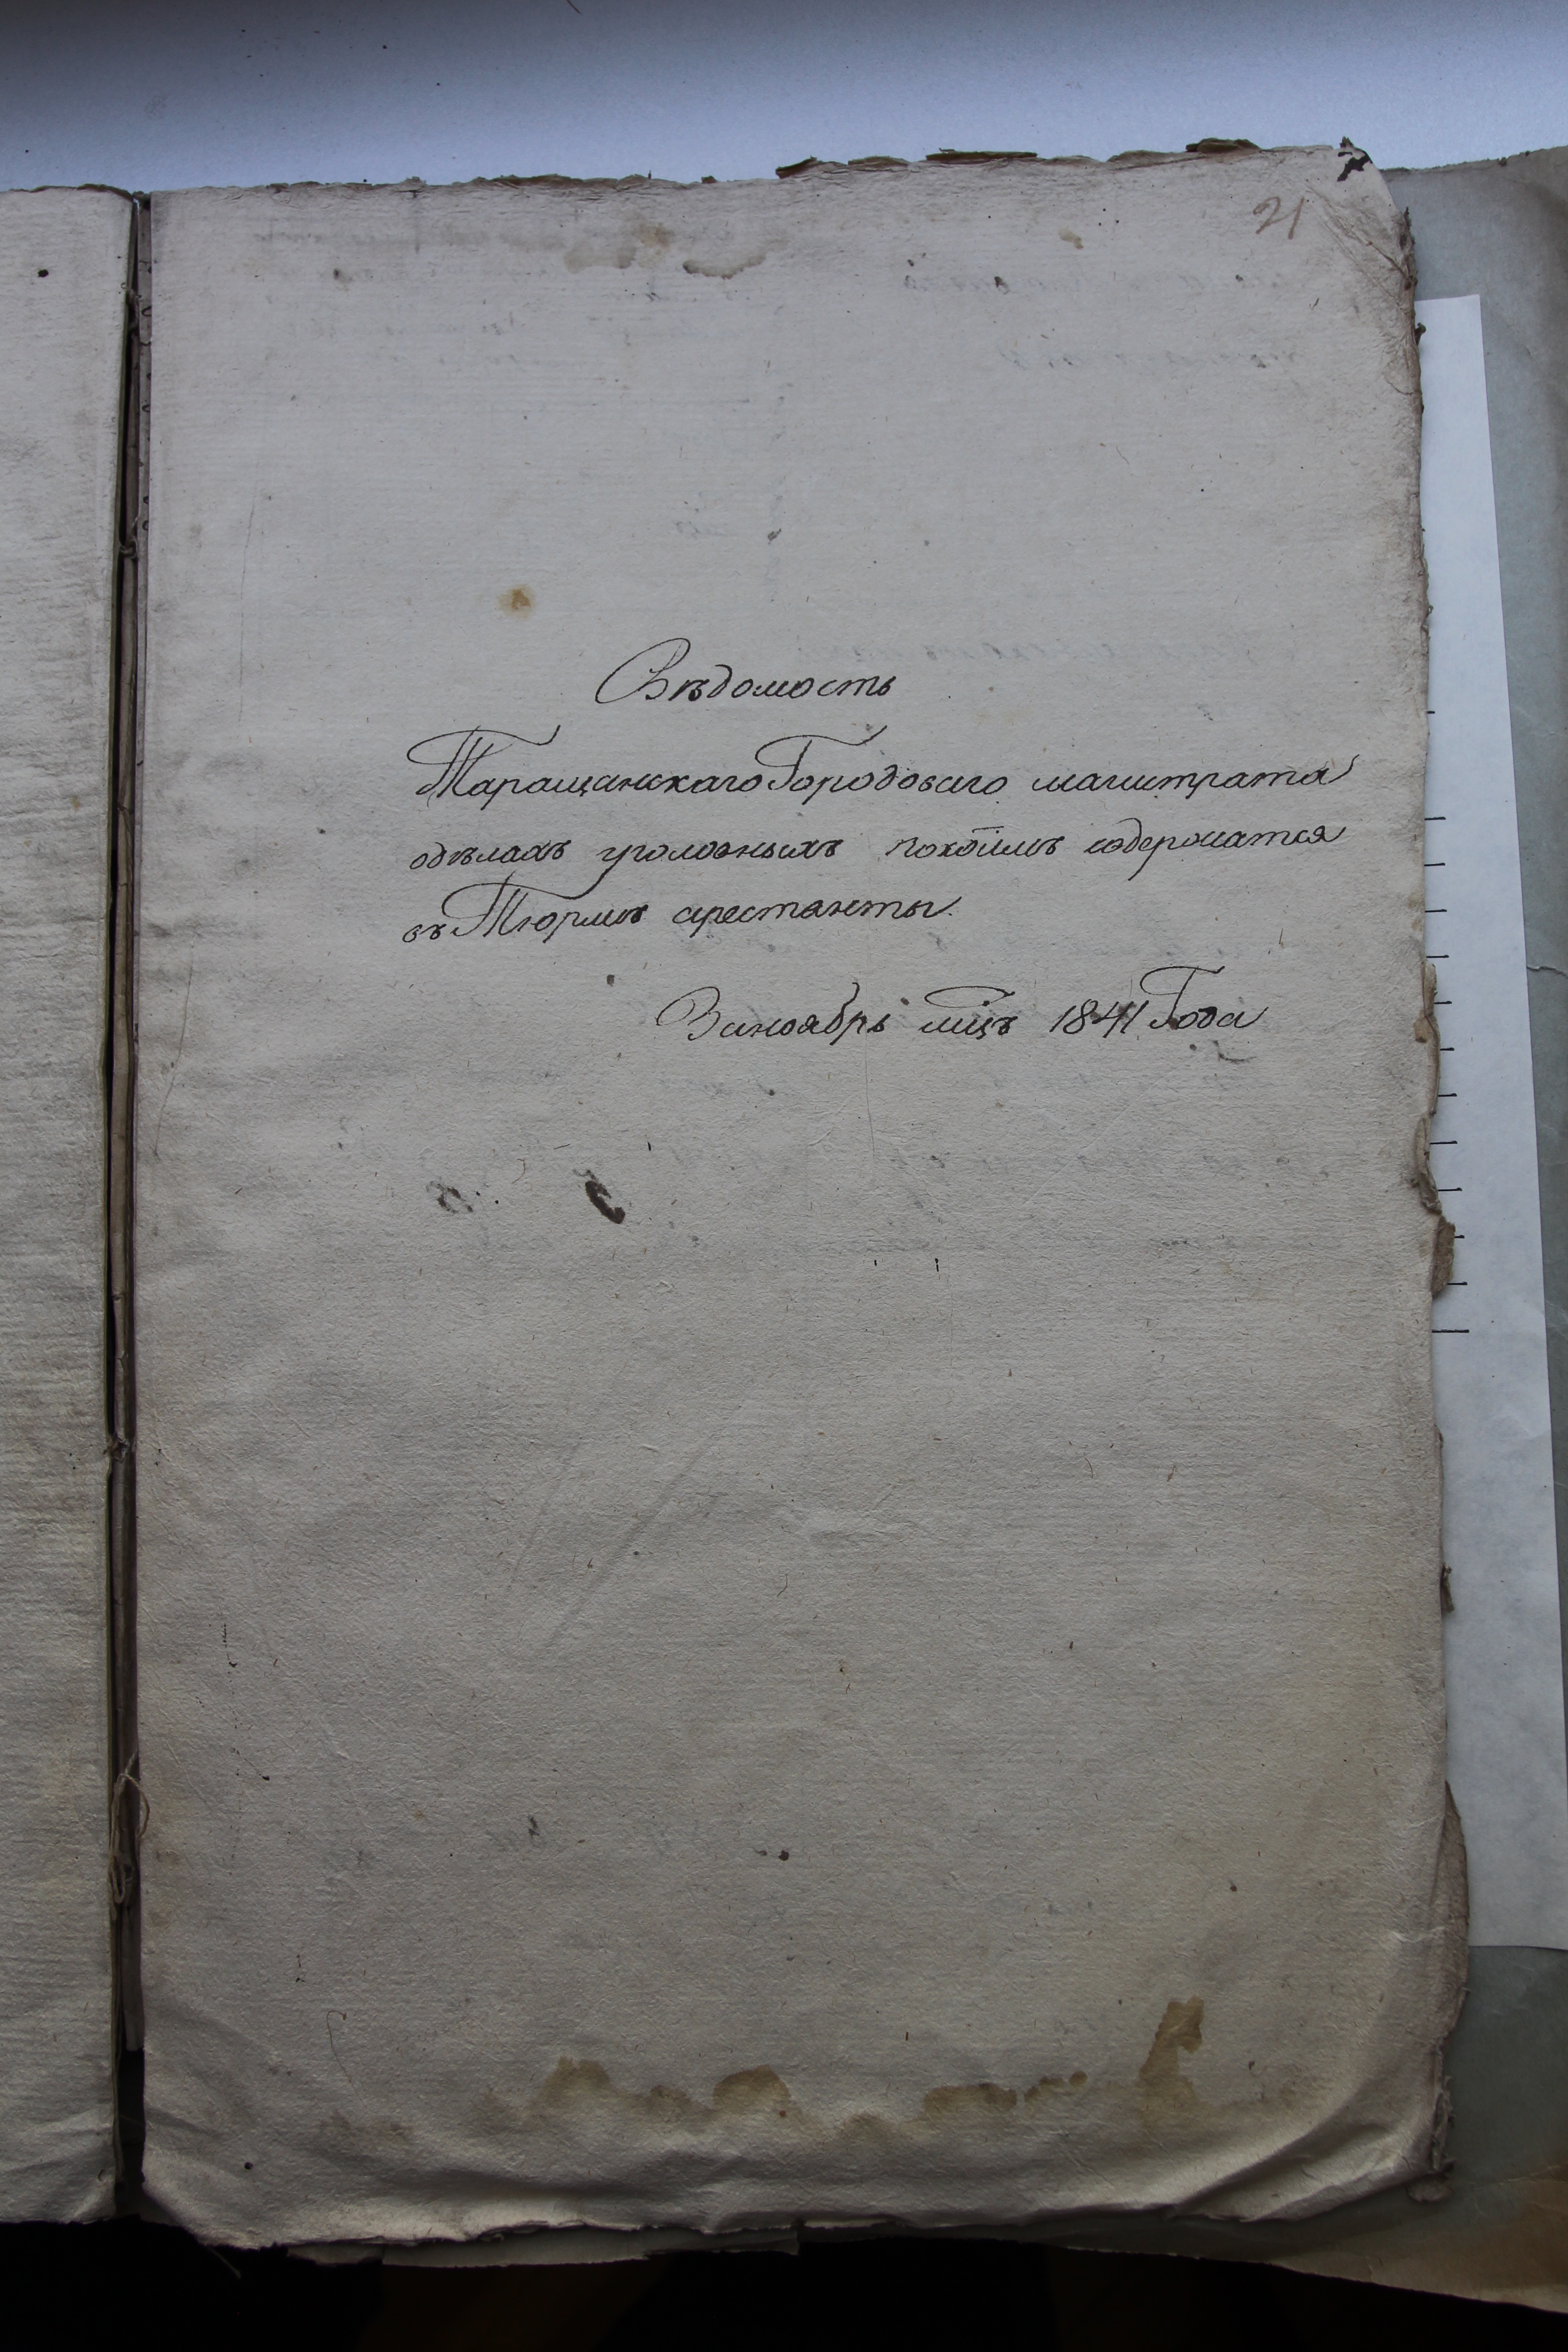 21
Вѣдомость
Таращанскаго Городоваго магистрата
одѣлахъ уголовныхъ покоимъ содержатся
въ Тюрмѣ арестанты.
Заноябрь мцъ 1841 Года